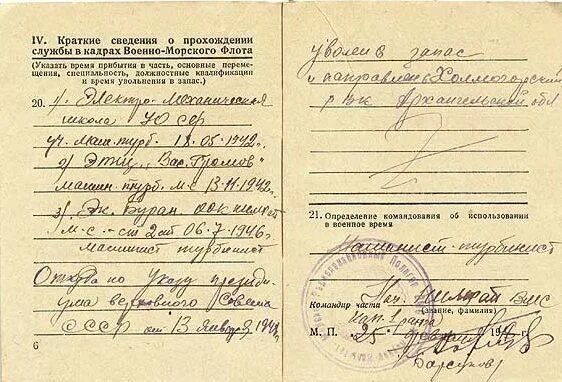 IV. Краткие сведения о прохождении
службы в кадрах Военно-Морского Флота
(Указать время прибытия в часть, основные переме-
щения, специальность, должностные квалификации
и время увольнения в запас.)
20. 1) Электро-механическая
школа
уч. маш. турб. 18.05.1942г.
2) "Вас. Громов"
машин. турб. м.с. 13.11.1942.
3) Эк. Буран.
м.с. - ст 2 06.7.1946г
машинист турбинист
Откуда по Указу президи
ума верховного Совета
СССР от 13 января
6
уволен в запас
и направлен в Холмогорский
РВК Архангельской обл
21. Определение командования об использовании
в военное время
машинист-турбинист
Командир части Нач.
кап. 1 ранга
(звание, фамилия)
М. П. 25